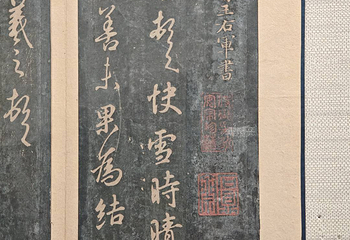 王右軍書
頓快雪時晴
善未果為結
羲之頓